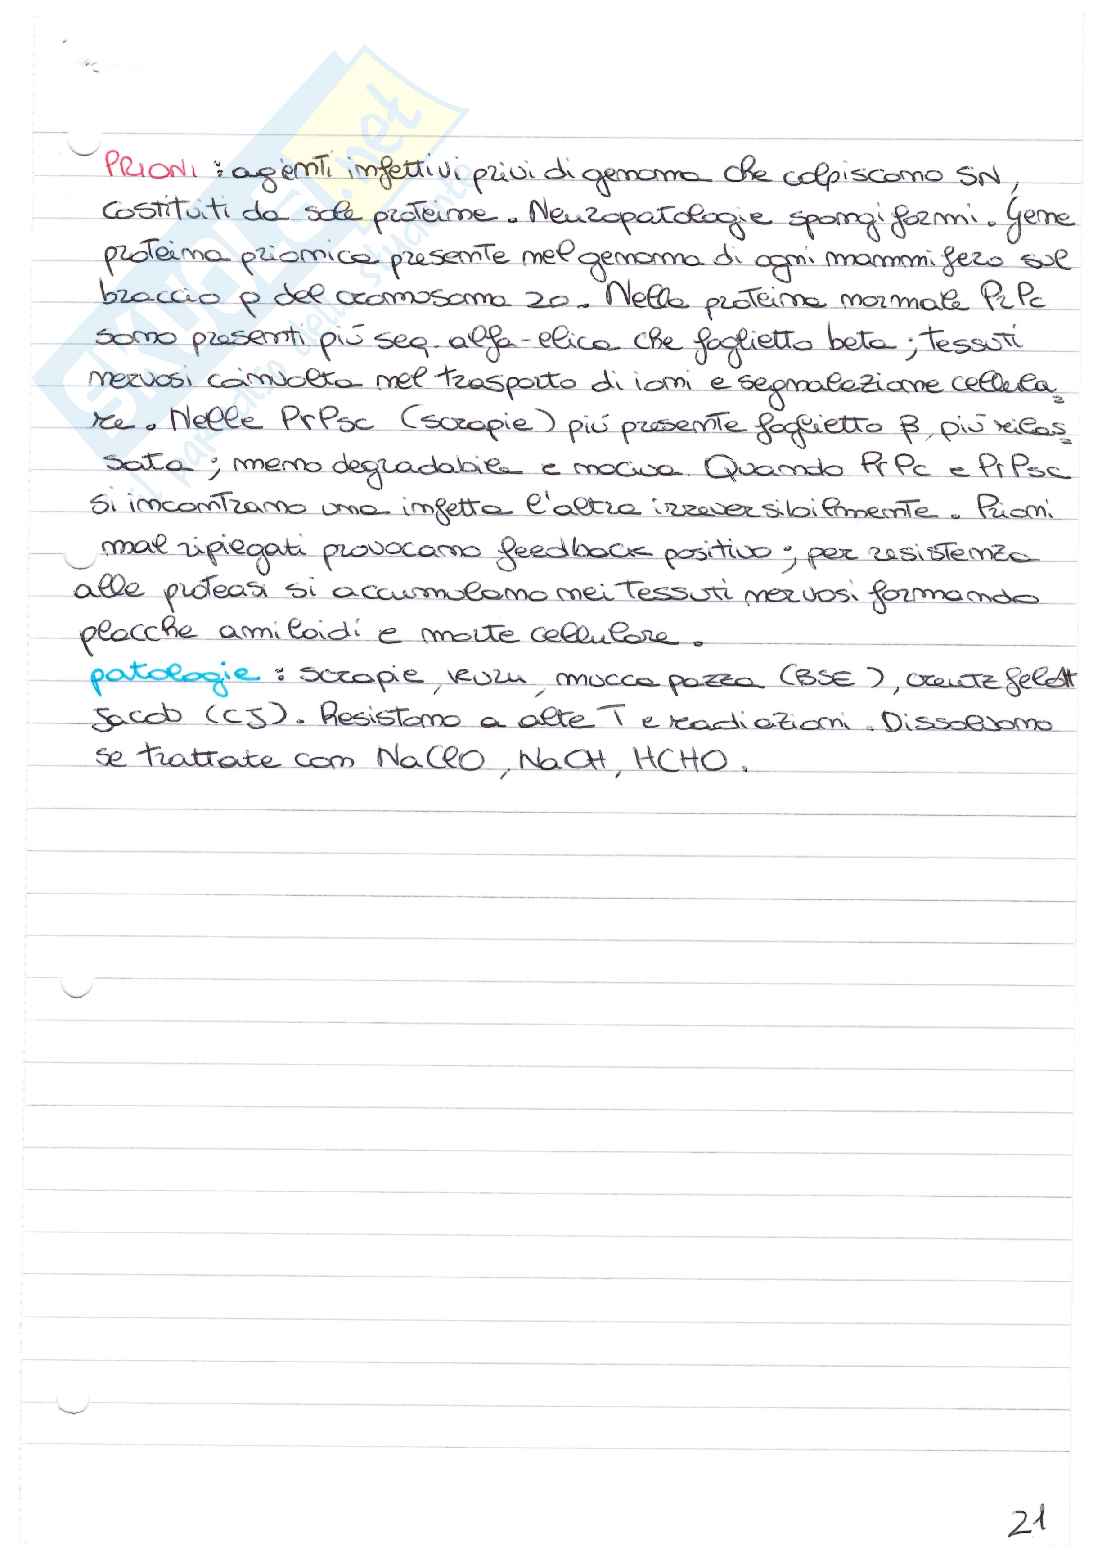 PRIONI : agenti infettivi privi di genoma che colpiscono SN,
costituiti da sole proteine. Neuropatologie spongiformi. Gene
proteina prionica presente nel genoma di ogni mammifero sul
braccio p del cromosoma 20. Nella proteina normale PrPc
sono presenti più seq. alfa-elica che foglietto beta; tessuti
nervosi coinvolta nel trasporto di ioni e segnalazione cellula=
re. Nelle PrPsc (scrapie) più presente foglietto β, più rilas=
sata; meno degradabile e nociva. Quando PrPc e PrPsc
si incontrano una infetta l'altra irreversibilmente. Prioni
mal ripiegati provocano feedback positivo; per resistenza
alle proteasi si accumulano nei tessuti nervosi formando
placche amiloidi e morte cellulare.
patologie : scrapie, kuru, mucca pazza (BSE), creutzfeldt
Jacob (CJ). Resistono a alte T e radiazioni. Dissolvono
se trattate con NaClO, NaOH, HCHO.
21
SKUOLA.net
il paradiso dello studente